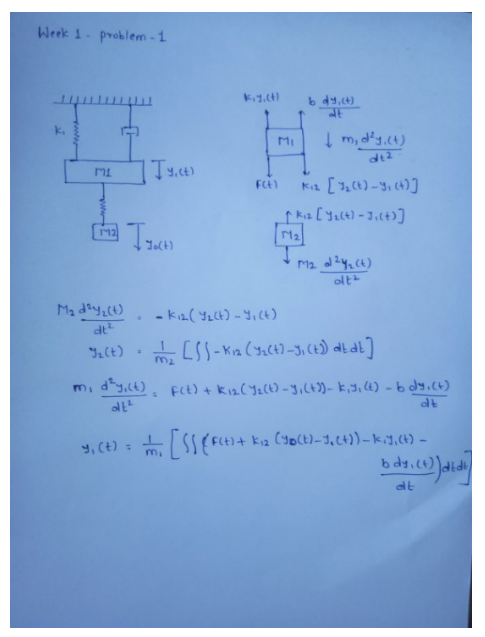 Week 1 - problem - 1
K₁
M1
y₁(t)
M2
y₀(t)
K₁y₁(t)
b dy₁(t)/dt
M₁
m₁ d²y₁(t)/dt²
F(t)
K₁₂ [y₂(t) - y₁(t)]
K₁₂ [y₂(t) - y₁(t)]
M2
M₂ d²y₂(t)/dt²
M₂ d²y₂(t)/dt² = - K₁₂(y₂(t) - y₁(t)
y₂(t) = 1/m₂ [∫∫ - K₁₂ (y₂(t) - y₁(t)) dt dt]
m₁ d²y₁(t)/dt² = F(t) + K₁₂(y₂(t) - y₁(t)) - K₁y₁(t) - b dy₁(t)/dt
y₁(t) = 1/m₁ [∫∫ (F(t) + K₁₂ (y₀(t) - y₁(t)) - K₁y₁(t) -
b dy₁(t)/dt) dt dt]